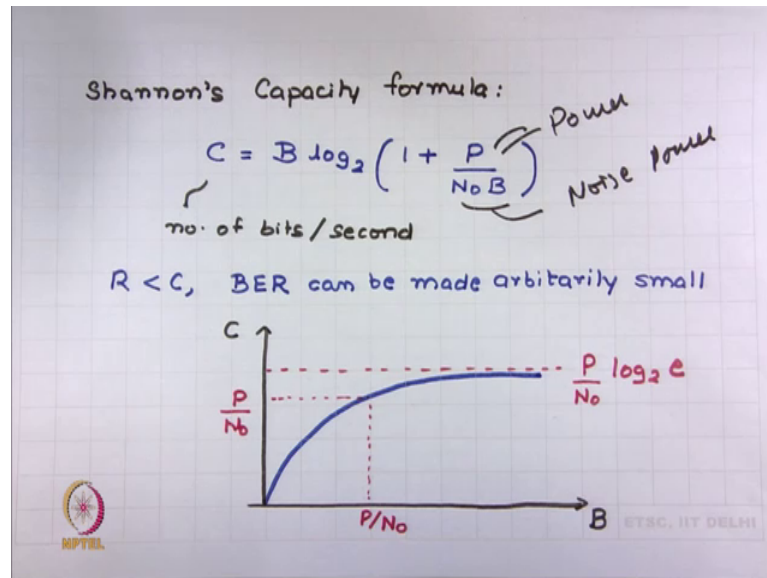 Shannon's Capacity formula:
C = B log₂ (1 + P / N₀B)
Power
Noise Power
no. of bits/second
R < C, BER can be made arbitarily small
C
P/N₀ log₂ e
P/N₀
P/N₀
B
ETSC, IIT DELHI
NPTEL